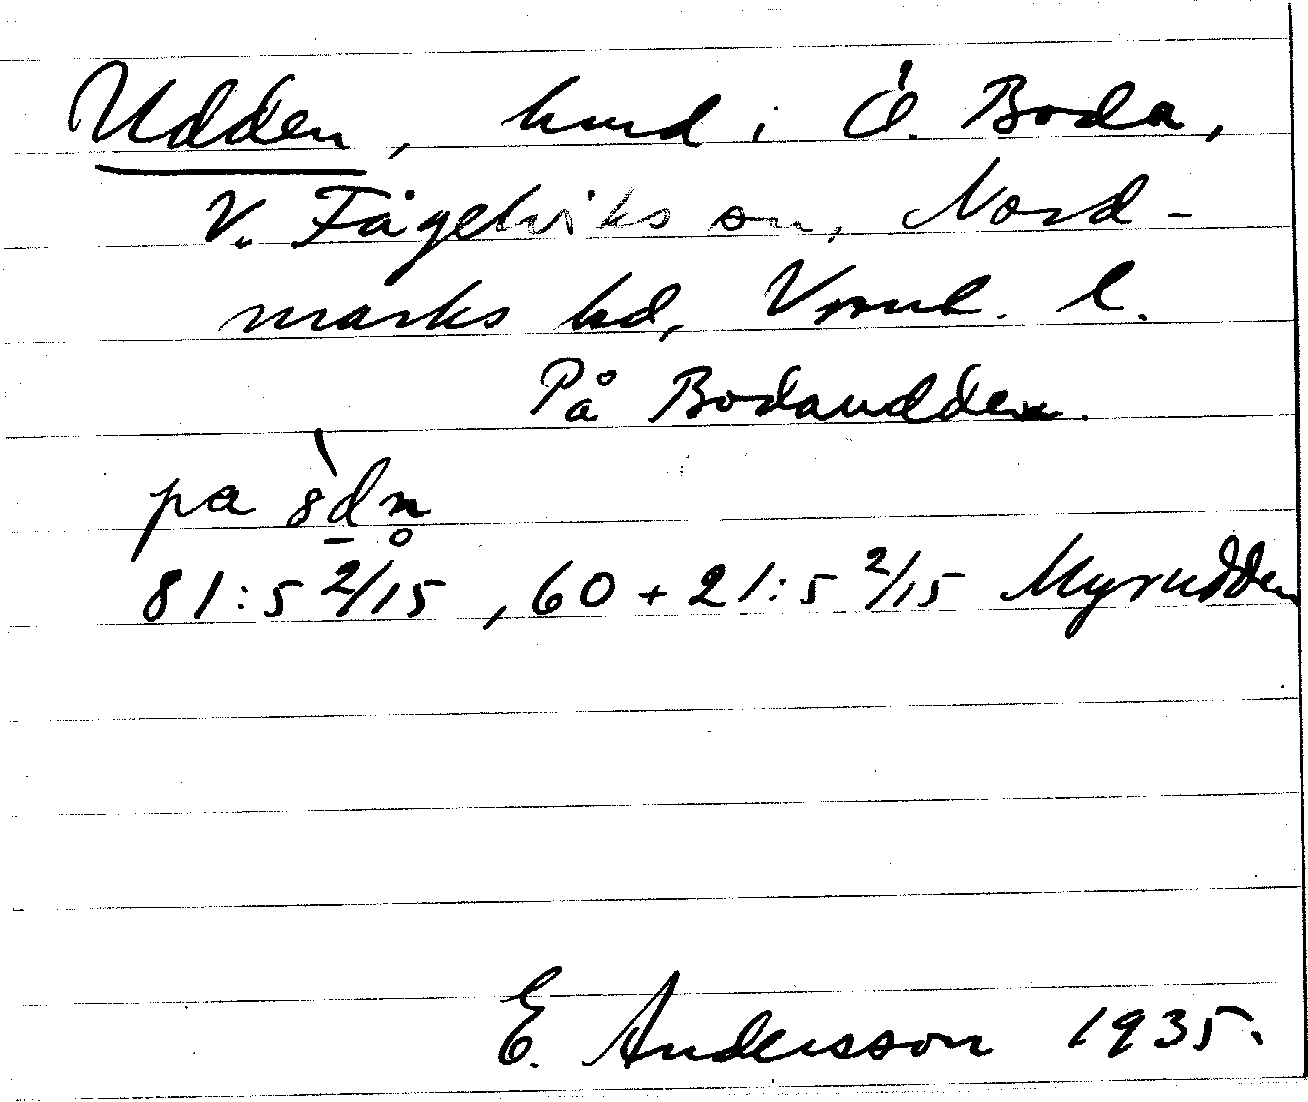 Udden, hmd i Ö. Boda,
V. Fågelviks sn, Nord-
marks hd, Vrml. l.
På Bodaudden.
pa
81:5 2/15, 60 + 21:5 2/15 Myrudden
E. Andersson 1935.